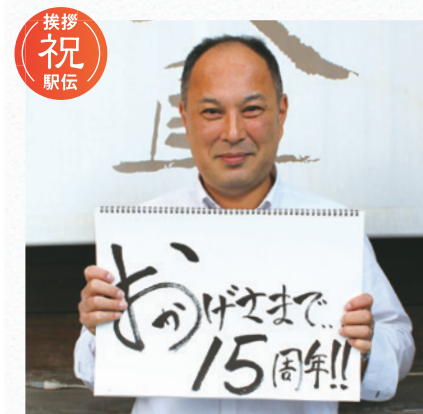 挨拶
祝
駅伝
おかげさまで..
15周年!!